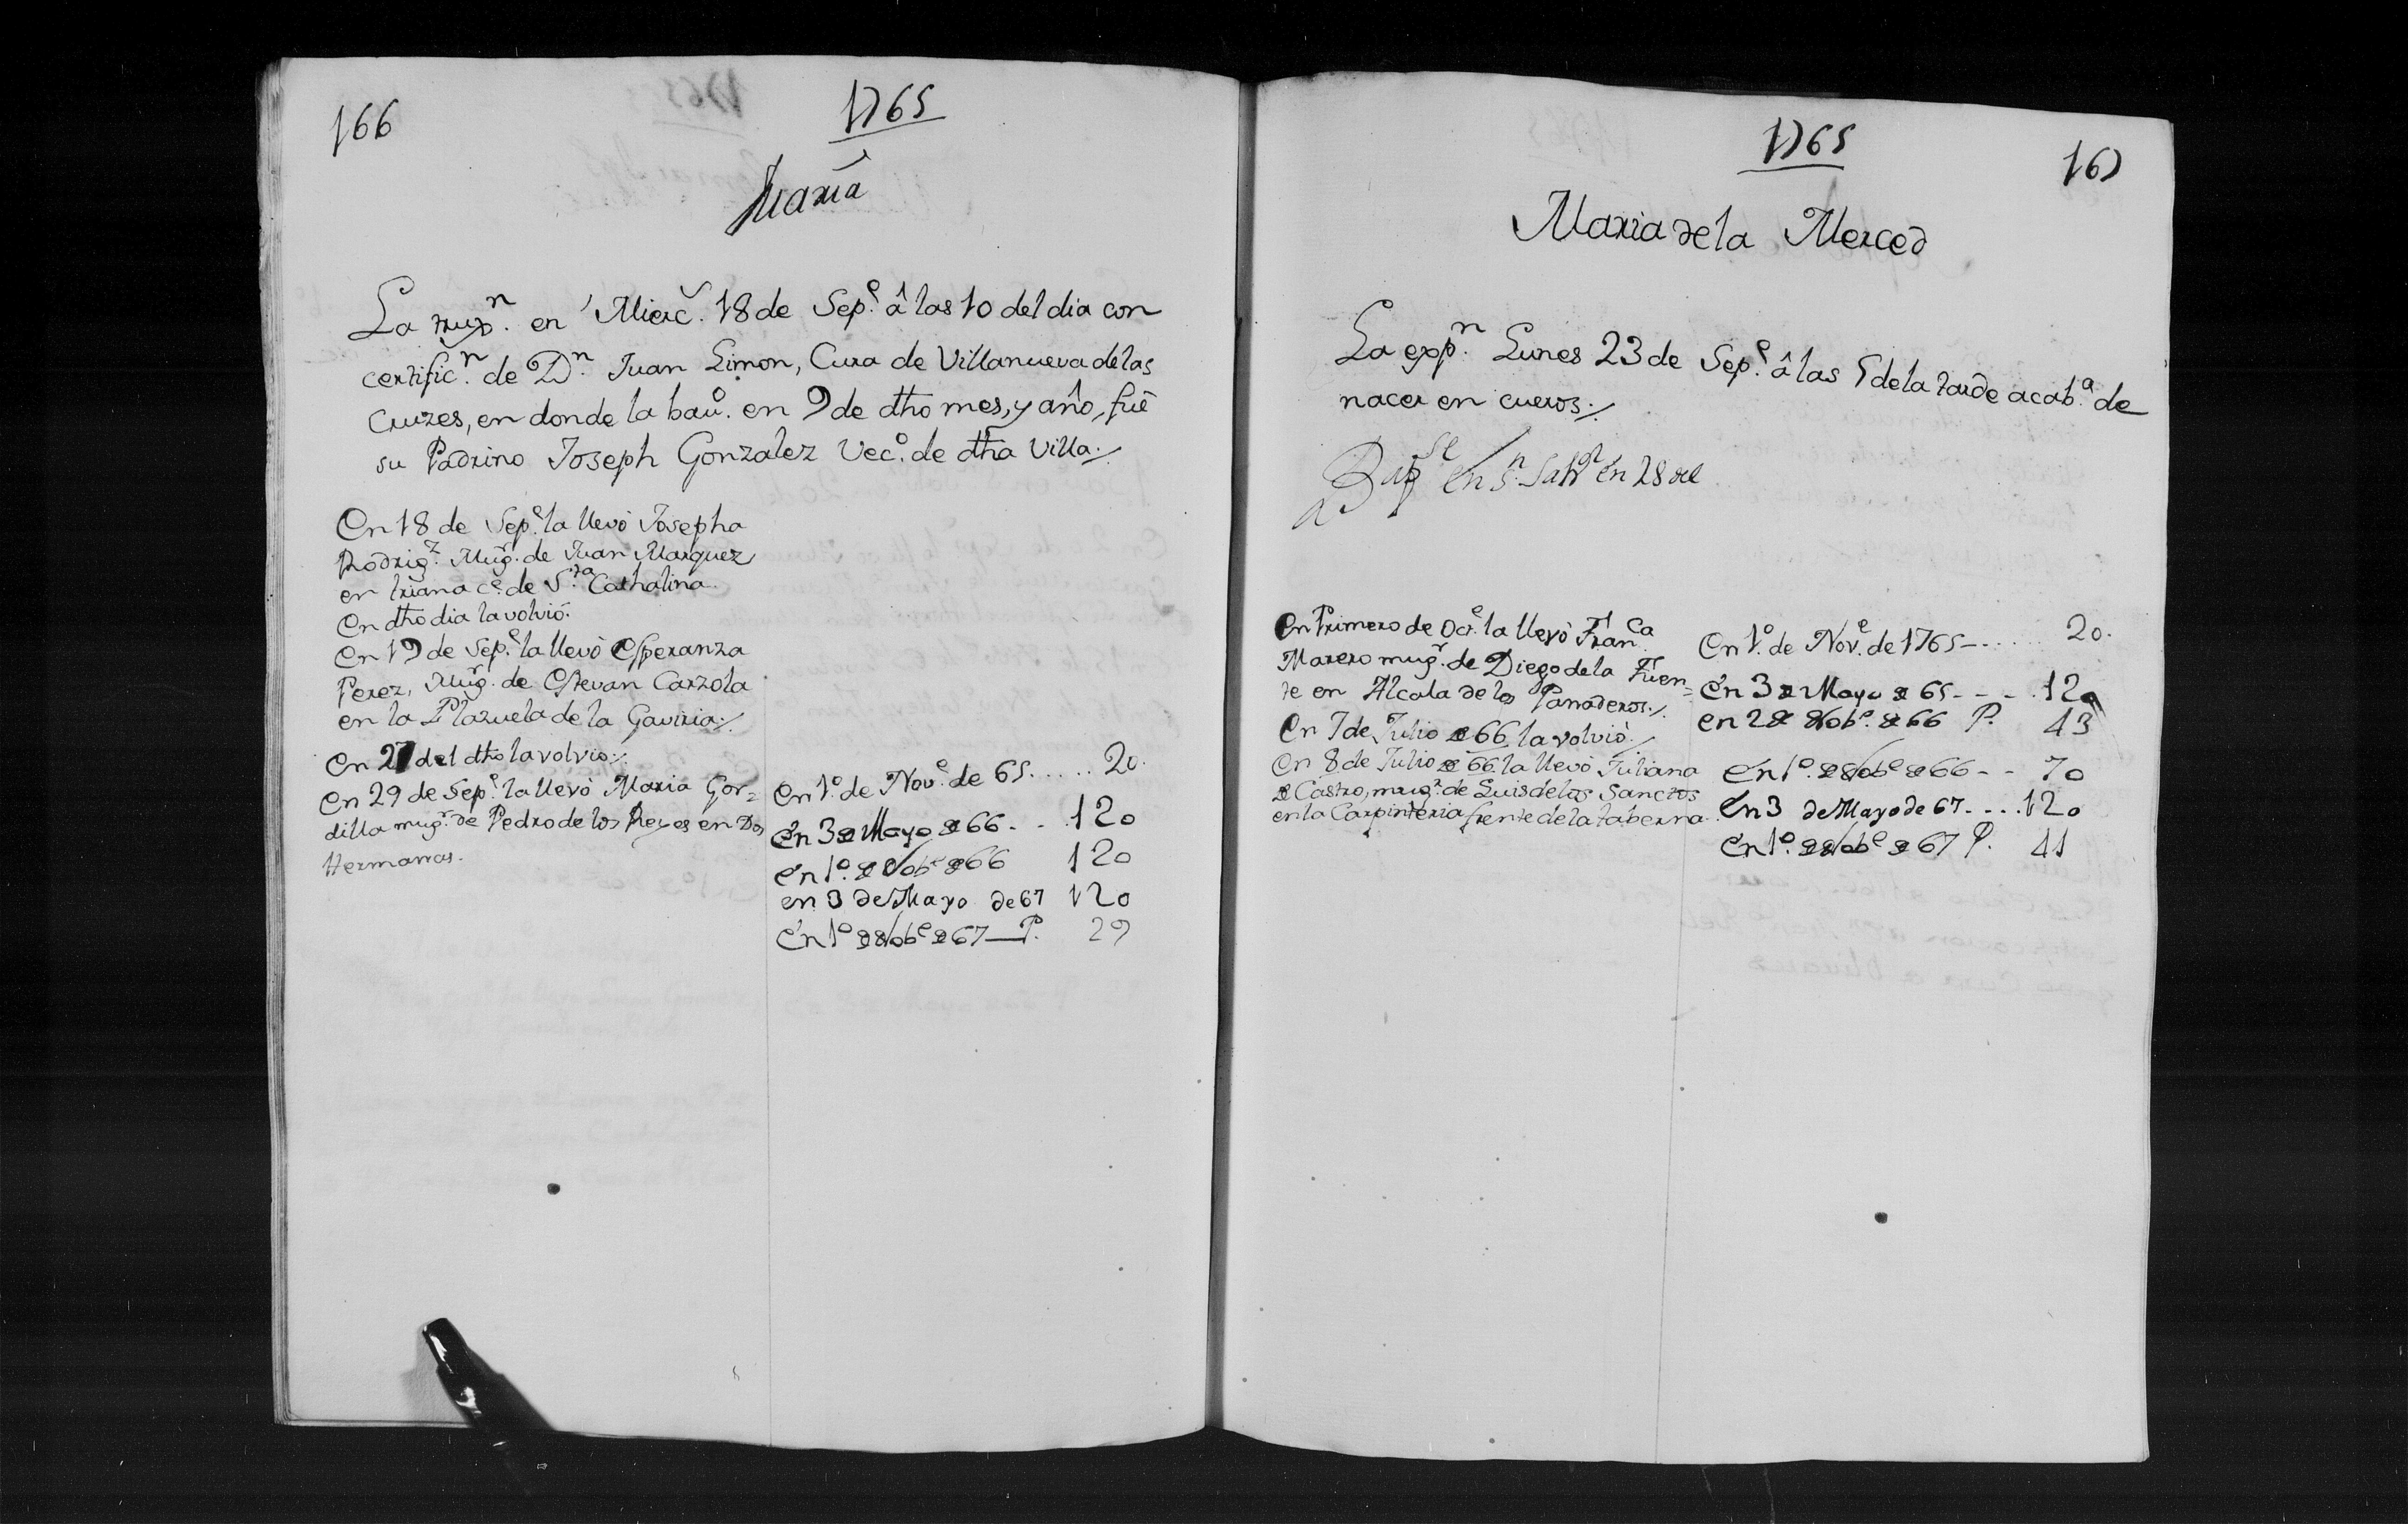 166
1765
Maria
La trug.n en Mierc. 18 de Sep.e â las 10 del dia con
certific.n de D.n Juan Limon, Cura de Villanueva de las
Cruzes, en donde la bau.o en 9 de dho mes, y año, fuê
su Padrino Joseph Gonzalez Vec.o de dha Villa./
En 18 de Sep.e la llevò Josepha
Rodrig.z Mug.r de Juan Marquez
en triana c.e de S.ta Cathalina.
En dho dia la volviò.
En 19 de Sep.e la llevò Esperanza
Perez, Mug.r de Estevan Cazzola
en la Plazuela de la Gaviria./
En 27 del dho la volvio./
En 29 de Sep.e la llevò Maria Gor=
dilla mug.r de Pedro de los Reyes en Dos
Hermanas.
En 1.o de Nov.e de 65...... 20.
En 3 de Mayo de 66 - - . 120
en 1.o de Nob.e de 66 120
en 3 de Mayo de 67 120
En 1.o de Nob.e de 67 — P. 29
1765
167
Maria de la Merced
La exp.n Lunes 23 de Sep.e â las 5 de la tarde acab.a de
nacer en cueros./
Bap.se en S.n Salv.r en 28 de
En Primero de Oct.e la llevò Fran.ca
Marero mug.r de Diego de la Fuen=
te en Alcala de los Panaderos./
En 7 de Julio de 66 la volviò./
En 8 de Julio de 66 la llevò Juliana
de Castro, mug.r de Luis de los Sanctos
en la Carpinteria frente de la taberna.
En 1.o de Nov.e de 1765 - ...... 20.
En 3 de Mayo de 65 - - - . 120
en 2 de Nob.e de 66 P. 43
En 1.o de Nob.e de 66 - - 70
En 3 de Mayo de 67 - ... 120
En 1.o de Nob.e de 67 P. 41